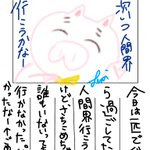 次いつ人間界
行こうかなー
今日は一匹で
ら過ごした
人間界行こう
けどさちこめち
誰もいないって
行かなかった。
かったなー